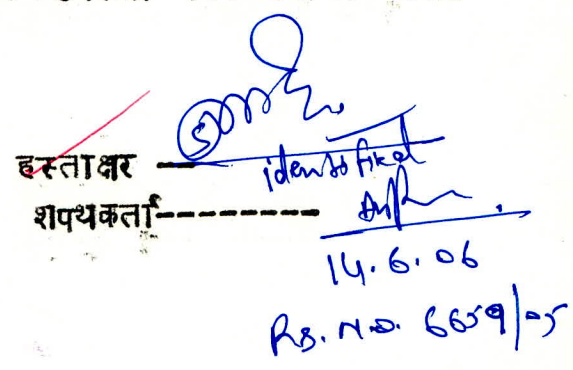 हस्ताक्षर
identified
शपथकर्ता---------
14.6.06
Rs. N.O. 6659/05